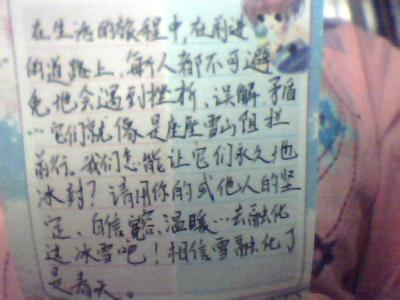 在生活的旅程中,在前进
的道路上,每个人都不可避
免地会遇到挫折、误解、矛盾
…它们就像是座座雪山阻拦
前行。我们怎能让它们永久地
冰封?请用你的或他人的坚
定、自信、宽容、温暖…去融化
这冰雪吧!相信雪融化了
是春天。